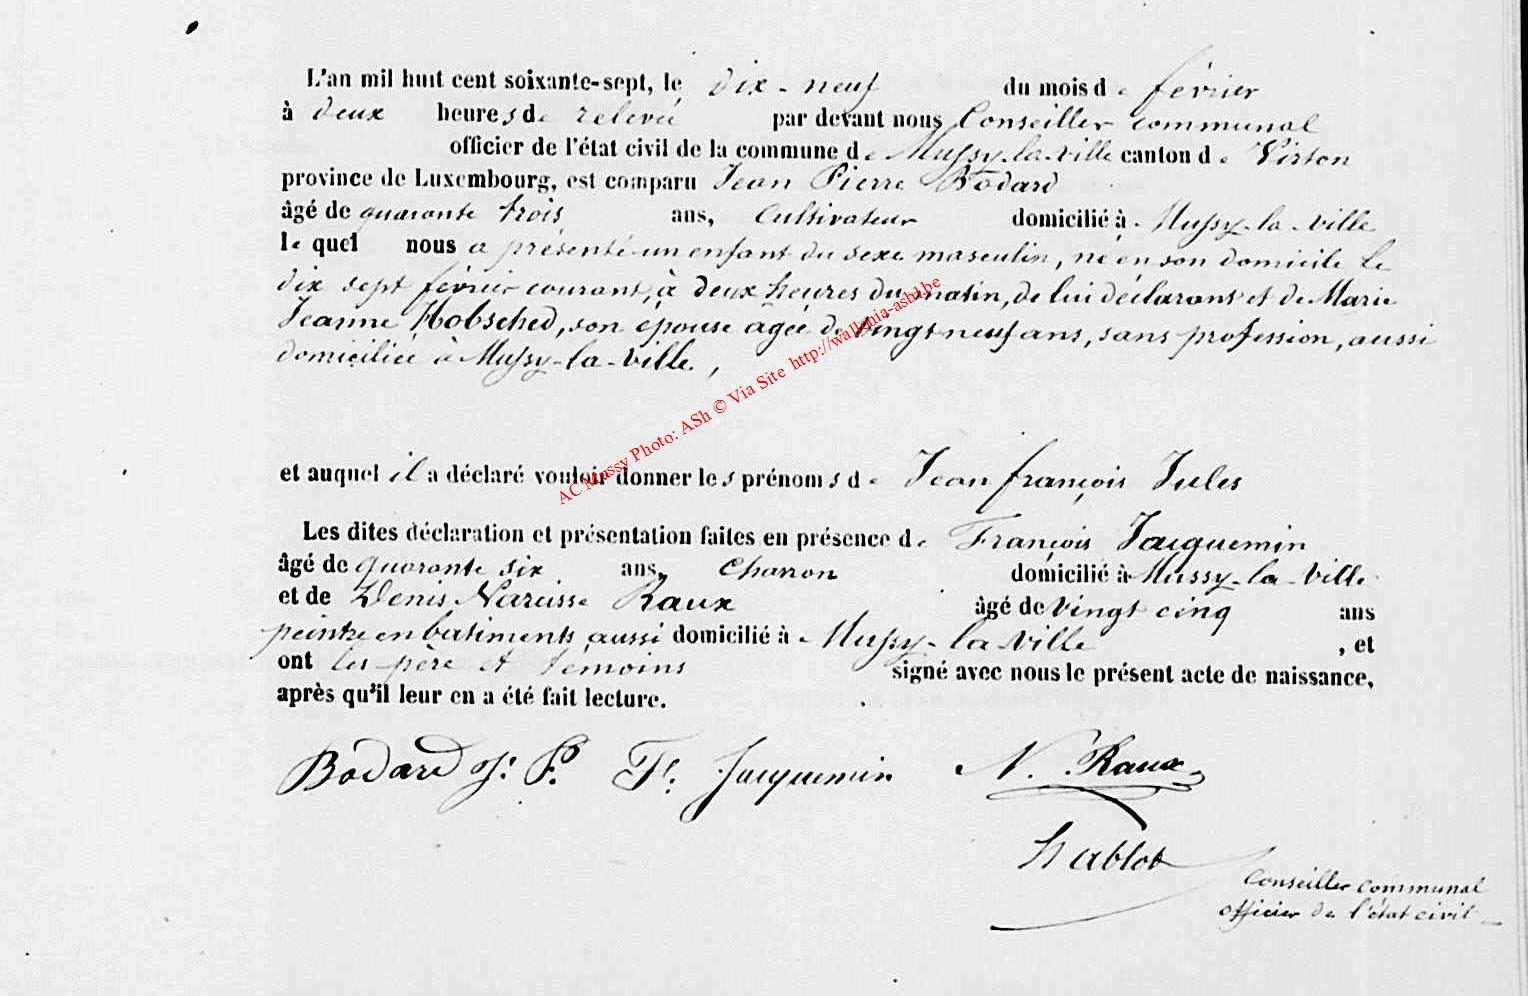 L'an mil huit cent soixante-sept, le dix-neuf du mois de février
à deux heures de relevée par devant nous Conseiller communal
officier de l'état civil de la commune de Mussy-la-ville canton de Virton
province de Luxembourg, est comparu Jean Pierre Bodard
âgé de quarante trois ans, Cultivateur domicilié à Mussy-la-ville
le quel nous a présenté un enfant du sexe masculin, né en son domicile le
dix sept février courant, à deux heures du matin, de lui déclarant et de Marie
Jeanne Hobsched, son épouse âgée de vingt neuf ans, sans profession, aussi
domiciliée à Mussy-la-ville,
et auquel il a déclaré vouloir donner les prénoms de Jean françois Jules
Les dites déclaration et présentation faites en présence de François Jacquemin
âgé de quarante six ans, Charron domicilié à Mussy-la-Ville
et de Denis Narcisse Raux âgé de vingt cinq ans
peintre en bâtiments, aussi domicilié à Mussy-la Ville, et
ont les père et témoins signé avec nous le présent acte de naissance,
après qu'il leur en a été fait lecture.
Bodard J. P. Fs. Jacquemin N. Raux
Hablot
Conseiller communal
officier de l'état civil
AC Mussy Photo: ASh © Via Site http://wallonia-ash1.be